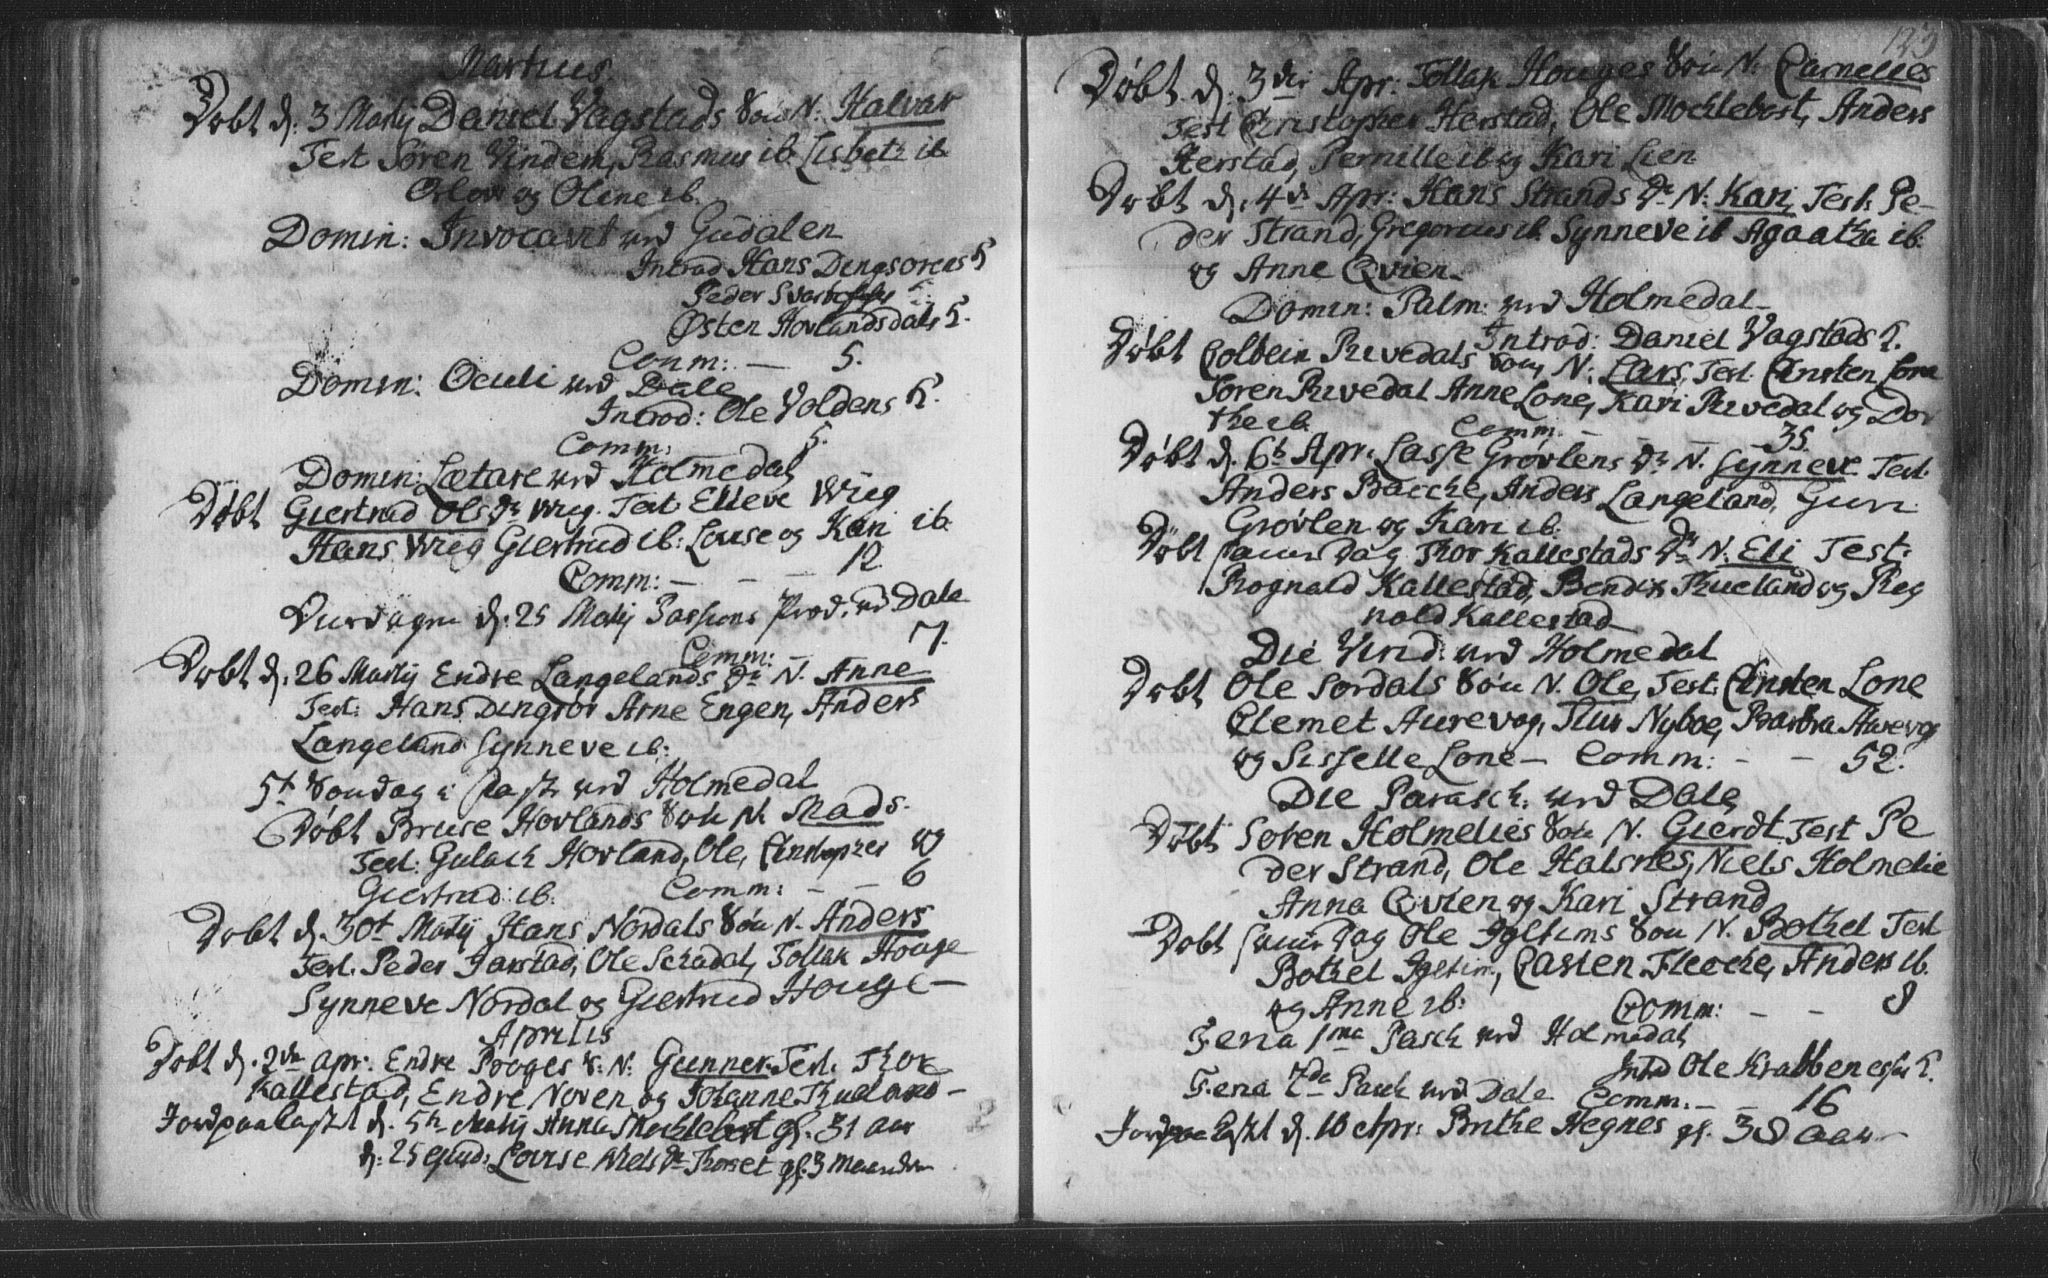 Martius.
Døbt d. 3 Martij Daniel Vagstads Søn N. Halvar
Test Søren Vindem, Rasmus ib. Lisbeth ib.
og Oline ib.
Domin: Invocavit ved Gudalen
Introd Hans Dingsørens h
Peder
Østen Hovlandsdals h.
Comm: — 5.
Domin: Oculi ved Dale
Introd: Ole Voldens h.
Comm: 5.
Domin: Lætare ved Holmedal
Døbt Giertrud Ols Dr Wrig. Test Elleve Wrig
Hans Wrig Giertrud ib: Louse og Kari ib.
Comm: — — — 12
d. 25 Martij Passions Præd. ved Dale
Comm: — 7.
Døbt d. 26 Martij Endre Langelands Dr N. Anne
Test: Hans Dingsør Arne Engen, Anders
Langeland Synneve ib:
5t Søndag i fast ved Holmedal
Døbt Bruse Hovlands Søn N. Mads.
Test: Gulack Hovland, Ole, Christopher og
Giertrud ib. Comm: — — 6
Døbt d. 30t Martij Hans Nordals Søn N. Anders
Test. Peder Jarstad, Ole Schadal, Tollak Houge
Synneve Nordal og Giertrud Houge —
Aprilis
Døbt d. 2den apr: Endre Bøges S. N: Gunner. Test. Thor
Kallestad, Endre Noven og Johanne Trueland —
Jordpaakast d. 5te Martij Anna Mochlebost gl. 31 aar
d: 25 ejusd: Louise Niels Dr Thoset gl. 3 maaneder
123
Døbt d. 3die Apr: Tollak Houges Søn N. Carnelies
Test Christopher Herstad, Ole Mochlebost, Anders
Herstad, Pernille ib og Kari Lien
Døbt d. 4de Apr: Hans Strands Dr N: Kari, Test: Pe-
der Strand, Gregorius ib. Synneve ib Agaatha ib.
og Anne Qvien —
Domin: Palm: ved Holmedal —
Introd: Daniel Vagstads h.
Døbt Colbein Rivedals Søn, N: Lars, Test. Christen Lone
Søren Rivedal Anne Lone, Kari Rivedal og Dor
the ib. Comm. — — — 35.
Døbt d. 6te Apr: Lasse Grøvlens Dr N. Synneve Test.
Anders Bache, Anders Langeland, Guri
Grøvlen og Kari ib.
Døbt samme Dag Thor Kallestads Dr N. Eli Test:
Rognald Kallestad, Bendix Trueland og Rog
nold Kallestad
Die Virid: ved Holmedal
Døbt Ole Sørdals Søn N. Ole, Test: Christen Lone
Clemet Aurevog, Siur Nyboe, Barbra Aurevog
og Sisselle Lone — Comm: — — 52.
Die Parasch: ved Dale
Døbt Søren Holmelies Søn N. Gierdt. Test Pe
der Strand, Ole Halsnes, Niels Holmelie
Anna Qvien og Kari Strand
Døbt samme Dag Ole Igltims Søn N. Bothel Test
Bothel Igltim, Casten Fleche, Anders ib.
og Anne ib: Comm: — — 8
Feria 1ma Pasch ved Holmedal
Introd Ole Krabbenesses h.
Feria 2da Pasch ved Dale Comm. — — 16
Jordpaakast d. 10 Apr: Brithe Hegnes gl. 38 aar —